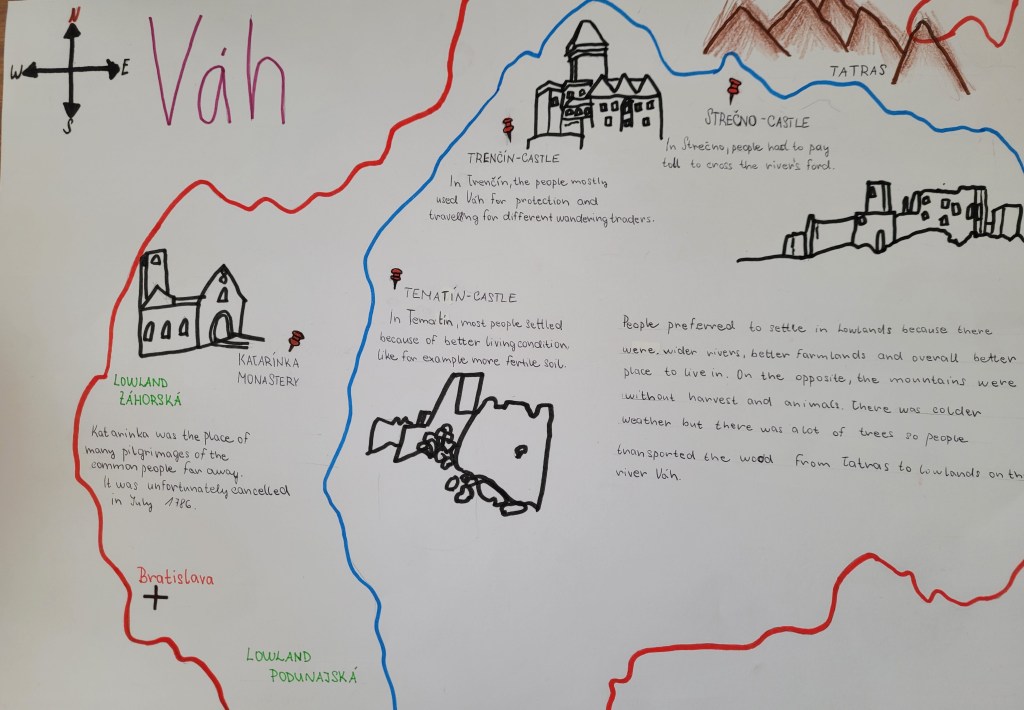 N
W E
S
Váh
TATRAS
STREČNO-CASTLE
In Strečno, people had to pay
toll to cross the river's ford.
TRENČÍN-CASTLE
In Trenčín, the people mostly
used Váh for protection and
travelling for different wandering traders.
TEMATÍN-CASTLE
In Tematín, most people settled
because of better living condition,
like for example more fertile soil.
KATARÍNKA
MONASTERY
LOWLAND
ZÁHORSKÁ
Katarinka was the place of
many pilgrimages of the
common people far away.
It was unfortunately cancelled
in July 1786.
People preferred to settle in Lowlands because there
were, wider rivers, better farmlands and overall better
place to live in. On the opposite, the mountains were
without harvest and animals. There was colder
weather but there was a lot of trees so people
transported the wood from Tatras to lowlands on th
river Váh.
Bratislava
LOWLAND
PODUNAJSKÁ